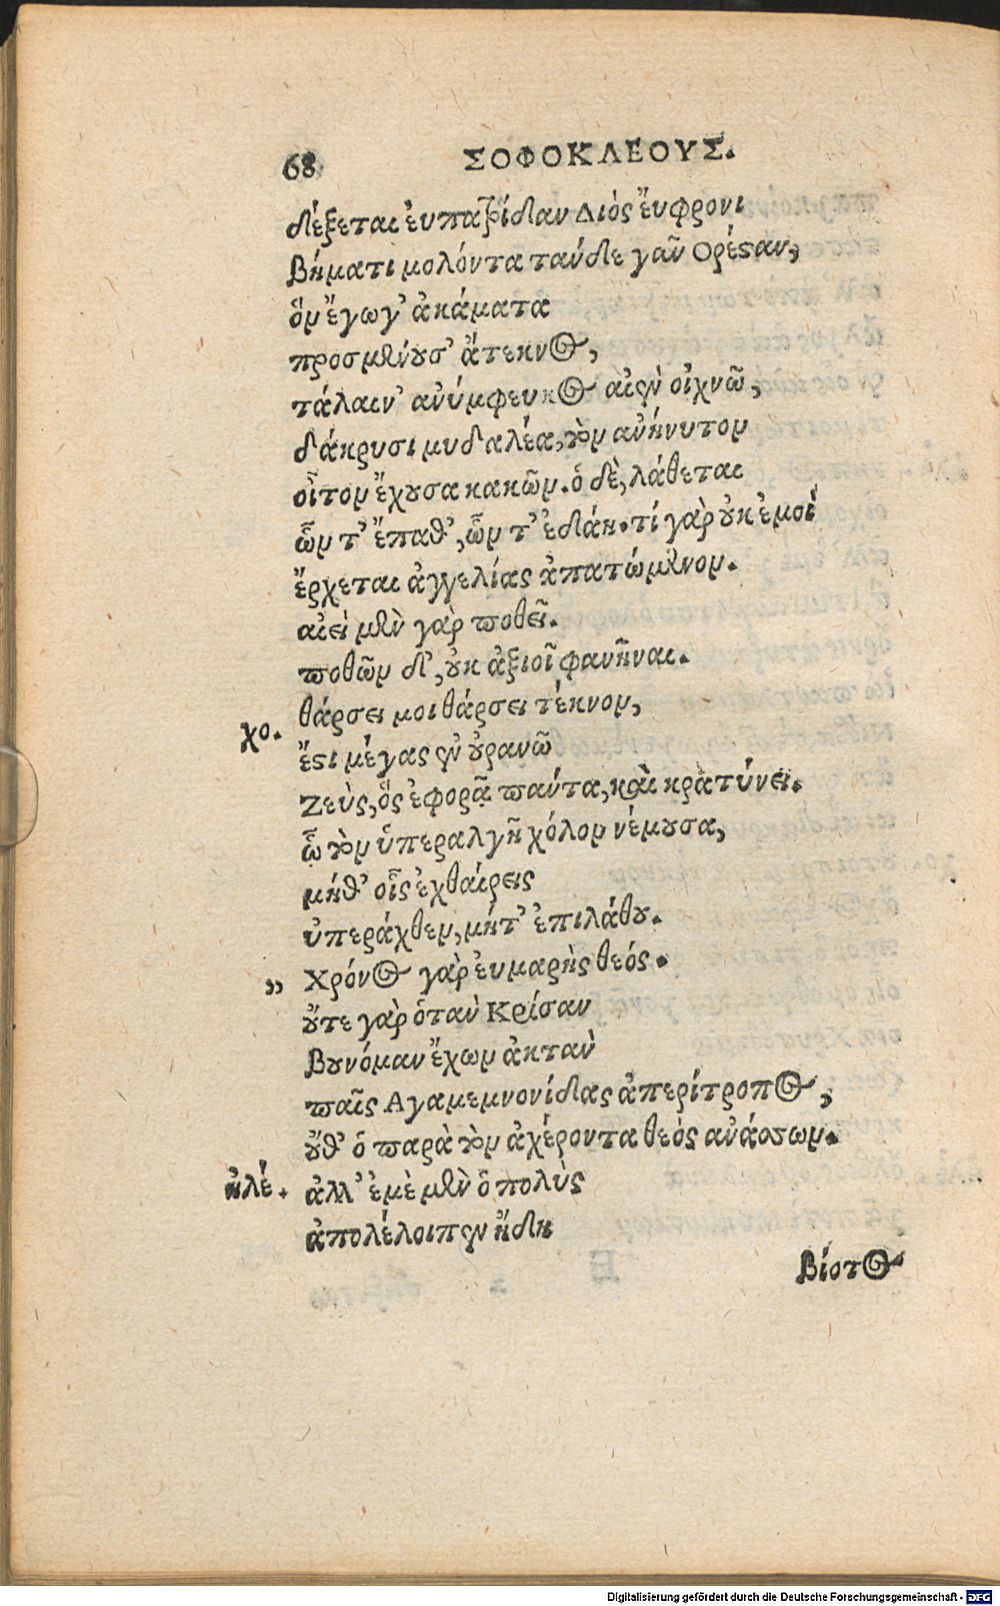 68 ΣΟΦΟΚΛΕΟΥΣ.
δέξεται ἐυπατρίδαν Διὸς ἔυφρονι
Βήματι μολόντα τάνδε γᾶν Ορέσαν,
ὅν ἔγωγ' ἀκάματα
προσμένουσ' ἄτεκνος,
τάλαιν' ἀνύμφευκος αἰὲν οἰχνῶ,
δάκρυσι μυδαλέα, τὸν ἀνήνυτον
οἶτον ἔχουσα κακῶν. ὁ δὲ, λάθεται
ὧν τ' ἔπαθ', ὧν τ' ἐδάη. τί γὰρ οὐκ ἐμοὶ
ἔρχεται ἀγγελίας ἀπατώμενον.
αἰεὶ μὲν γὰρ ποθεῖ.
ποθῶν δ', οὐκ ἀξιοῖ φανῆναι.
χο. θάρσει μοι θάρσει τέκνον,
ἔστι μέγας ἐν οὐρανῶ
Ζεὺς, ὃς ἐφορᾷ πάντα, καὶ κρατύνει.
ᾧ τὸν ὑπεραλγῆ χόλον νέμουσα,
μήθ' οἷς ἐχθαίρεις
ὑπεράχθεν, μήτ' ἐπιλάθου.
„ Χρόνος γὰρ ἐυμαρὴς θεός.
οὔτε γὰρ ὁ τὰν Κρίσαν
Βουνόμαν ἔχων ἀκτὰν
παῖς Αγαμεμνονίδας ἀπερίτροπος,
οὔθ' ὁ παρὰ τὸν ἀχέροντα θεὸς ἀνάσσων.
ἠλέ. ἀλλ' ἐμὲ μὲν ὁ πολὺς
ἀπολέλοιπεν ἤδη
Βίοτος
Digitalisierung gefördert durch die Deutsche Forschungsgemeinschaft - DFG